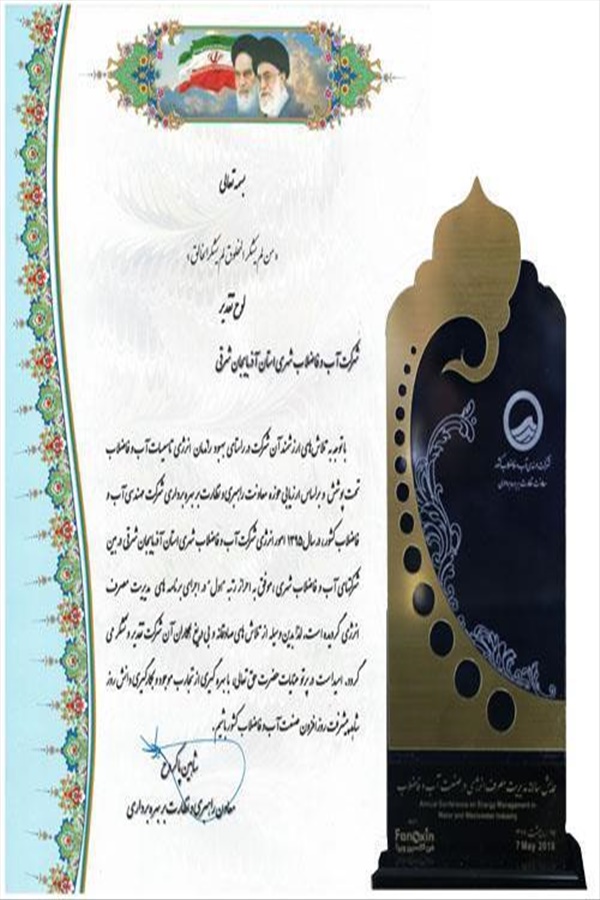 بسمه تعالی
«من لم یشکر المخلوق لم یشکر الخالق»
لوح تقدیر
شرکت آب و فاضلاب شهری استان آذربایجان شرقی
با توجه به تلاش‌های ارزشمند آن شرکت در راستای بهبود راندمان انرژی تاسیسات آب و فاضلاب
تحت پوشش و بر اساس ارزیابی حوزه معاونت راهبری و نظارت بر بهره برداری شرکت مهندسی آب و
فاضلاب کشور، در سال ۱۳۹۵ امور انرژی شرکت آب و فاضلاب شهری استان آذربایجان شرقی در بین
شرکتهای آب و فاضلاب شهری، موفق به احراز رتبه "اول" در اجرای برنامه های مدیریت مصرف
انرژی گردیده است. لذا بدین وسیله از تلاش های صادقانه و بی دریغ همکاران آن شرکت تقدیر و تشکر می
گردد. امید است در پرتو عنایات حضرت حق تعالی، با بهره گیری از تجارب موجود و بکارگیری دانش روز
شاهد پیشرفت روز افزون صنعت آب و فاضلاب کشور باشیم.
شاهین پاکروح
معاون راهبری و نظارت بر بهره برداری
شرکت مهندسی آب و فاضلاب کشور
معاونت نظارت بر بهره برداری
همایش سالانه مدیریت مصرف انرژی در صنعت آب و فاضلاب
Annual Conference on Energy Management in
Water and Wastewater Industry
Fanoxin
7 May 2018